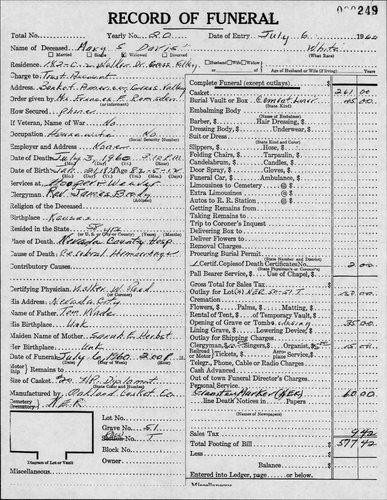 RECORD OF FUNERAL
000249
Total No. Yearly No. 20 Date of Entry July 6 1960
Name of Deceased Mary S. Davis White
Married Single Widowed Divorced (What Race)
Residence 182-C-2 Walker Dr. Grass Valley Husband Wife Widow of
Charge to Trust Account Age of Husband or Wife (if living) Years
Address Basket American Grass Valley
Order given by Mrs. Frances E. Ramsden
How Secured phone
If Veteran, Name of War No
Occupation Housewife No (Social Security No.)
Employer and Address None
Date of Death July 3, 1960
Date of Birth 21, 1877 Age 82-5-12
Services at Hooper & Weaver
Clergyman Rev. James Brady
Religion of the Deceased
Birthplace Kansas
Resided in the State
Place of Death Nevada County Hosp.
Cause of Death Cerebral Hemorrhage
Contributory Causes
Certifying Physician Walker W. Reed
His Address Nevada City
Name of Father Tom Wade
His Birthplace Unk
Maiden Name of Mother Sarah E. Herbst
Her Birthplace Unk
Date of Funeral July 6, 1960 2:00 P.M.
Ship Remains to
Size of Casket
Manufactured by Oakland Casket Co
Cemetery
Lot No.
Grave No. 51
Section No. T
Block No.
Owner
Diagram of Lot or Vault
Miscellaneous
Complete Funeral (except outlays) $
Casket 261 00
Burial Vault or Box Cement Liner 45 00
(State Kind)
Embalming Body
(Name of Embalmer)
Barber, $ Hair Dressing, $
Dressing Body, $ Underwear, $
Suit or Dress
(State Kind and Color)
Slippers, $ Hose, $
Folding Chairs, $ Tarpaulin, $
Candelabrum, $ Candles, $
Door Spray, $ Gloves, $
Funeral Car, $ Ambulance, $
Limousines to Cemetery @ $
Extra Limousines @ $
Autos to R. R. Station @ $
Getting Remains from
Taking Remains to
Trip to Coroner's Inquest
Delivering Box to
Deliver Flowers to
Removal Charges
Procuring Burial Permit
(State Number and District)
Certif. Copies of Death Certificates No. 2 00
(State Physician's or Coroner's)
Pall Bearer Service, $ Use of Chapel, $
Gross Total for Sales Tax $
Outlay for Lot
Cremation
Flowers, $ Palms, $ Matting, $
Rental of Tent, $ of Temporary Vault, $
Opening of Grave or Tomb 35 00
Lining Grave, $ Lowering Device, $
Outlay for Shipping Charges
Clergyman, $ Singers, $ Organist, $
Tickets, $ Aeroplane Service, $
Telegr., Phone, Cable or Radio Charges
Cash Advanced
Out of town Funeral Director's Charges
Personal Service
60 00
line Death Notices in Papers
(Names of Newspapers)
Sales Tax 9 42
Total Footing of Bill $ 577 42
Less
Balance $
Entered into Ledger, page or below.
Miscellaneous